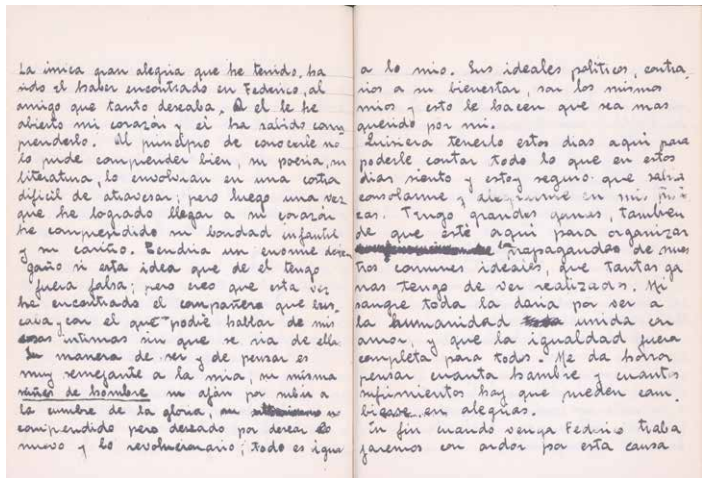 La única gran alegria que he tenido, ha
sido el haber encontrado en Federico, al
amigo que tanto deseaba. A el le he
abierto mi corazón y él ha sabido com
prenderlo. Al principio de conocerle no
lo pude comprender bien, su poesia, su
literatura, lo envolvian en una costra
dificil de atravesar; pero luego una vez
que he logrado llegar a su corazón
he comprendido su bondad infantil
y su cariño. Tendria un enorme desen
gaño si esta idea que de el tengo
fuera falsa; pero creo que esta vez
he encontrado el compañero que bus
caba y con el que podré hablar de mis
cosas intimas sin que se ria de ellas.
Su manera de ser y de pensar es
muy semejante a la mia, su misma
niñez de hombre su afán por subir a
la cumbre de la gloria, su no
comprendido pero deseado por desear lo
nuevo y lo revolucionario; todo es igual
a lo mio. Sus ideales politicos, contra
rios a su bienestar, son los mismos
mios y esto le hacen que sea mas
querido por mi.
Quisiera tenerlo estos dias aqui para
poderle contar todo lo que en estos
dias siento y estoy seguro que sabria
consolarme y alegrarme en mis
cas. Tengo grandes ganas, tambien
de que esté aqui para organizar
propagandas de nues
tros comunes ideales, que tantas ga
nas tengo de ver realizados. Mi
sangre toda la daria por ver a
la humanidad unida con
amor, y que la igualdad fuera
completa para todos. Me da horror
pensar cuanta hambre y cuantos
sufrimientos hay que pueden cam
biarse en alegrias.
En fin cuando venga Federico traba
jaremos con ardor por esta causa